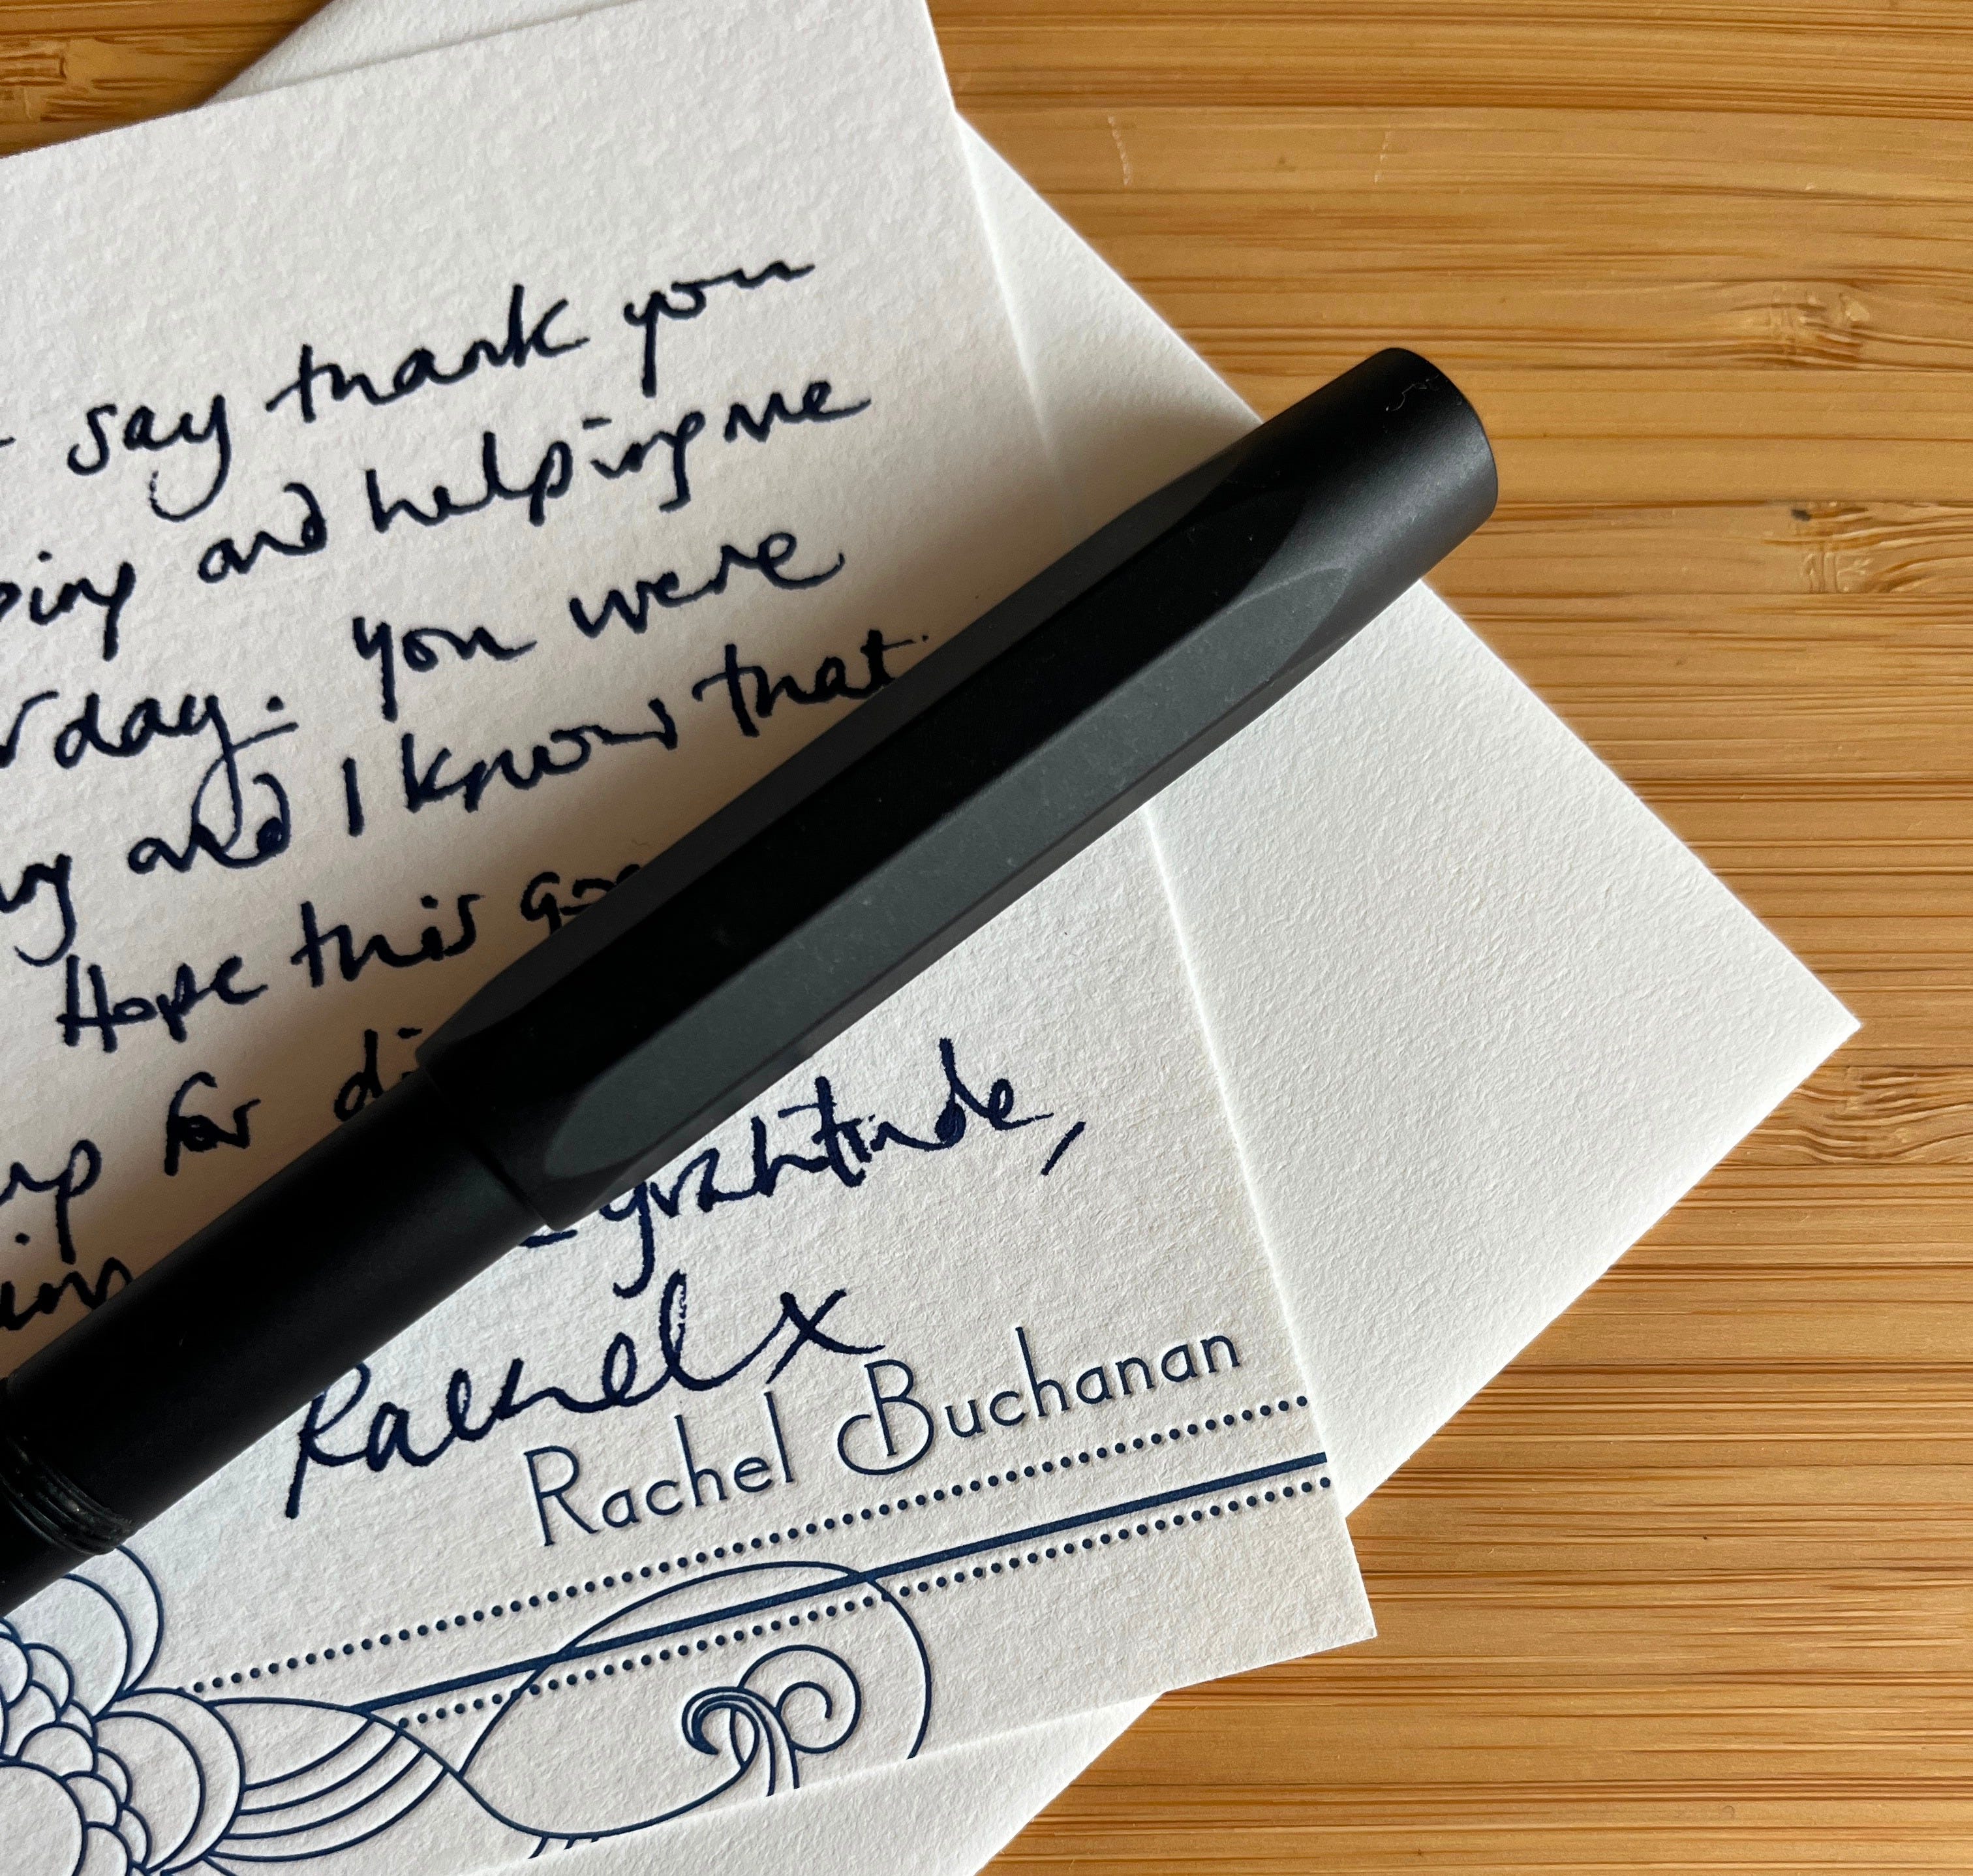 say thank you
and helping me
day. you were
and I know that
Hope this
for
gratitude,
Rachel x
Rachel Buchanan